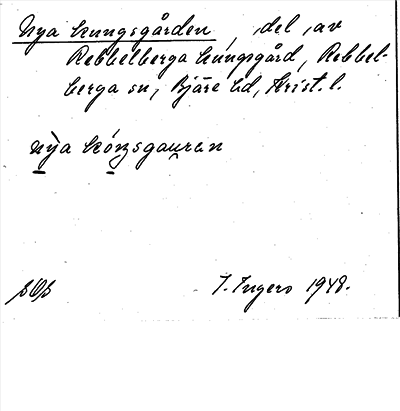 Nya Kungsgården, del av
Rebbelberga Kungsgård, Rebbel-
berga sn, Bjäre hd, Krist. l.
nỳa kóŋsgau̯ran
I. Ingers 1948.